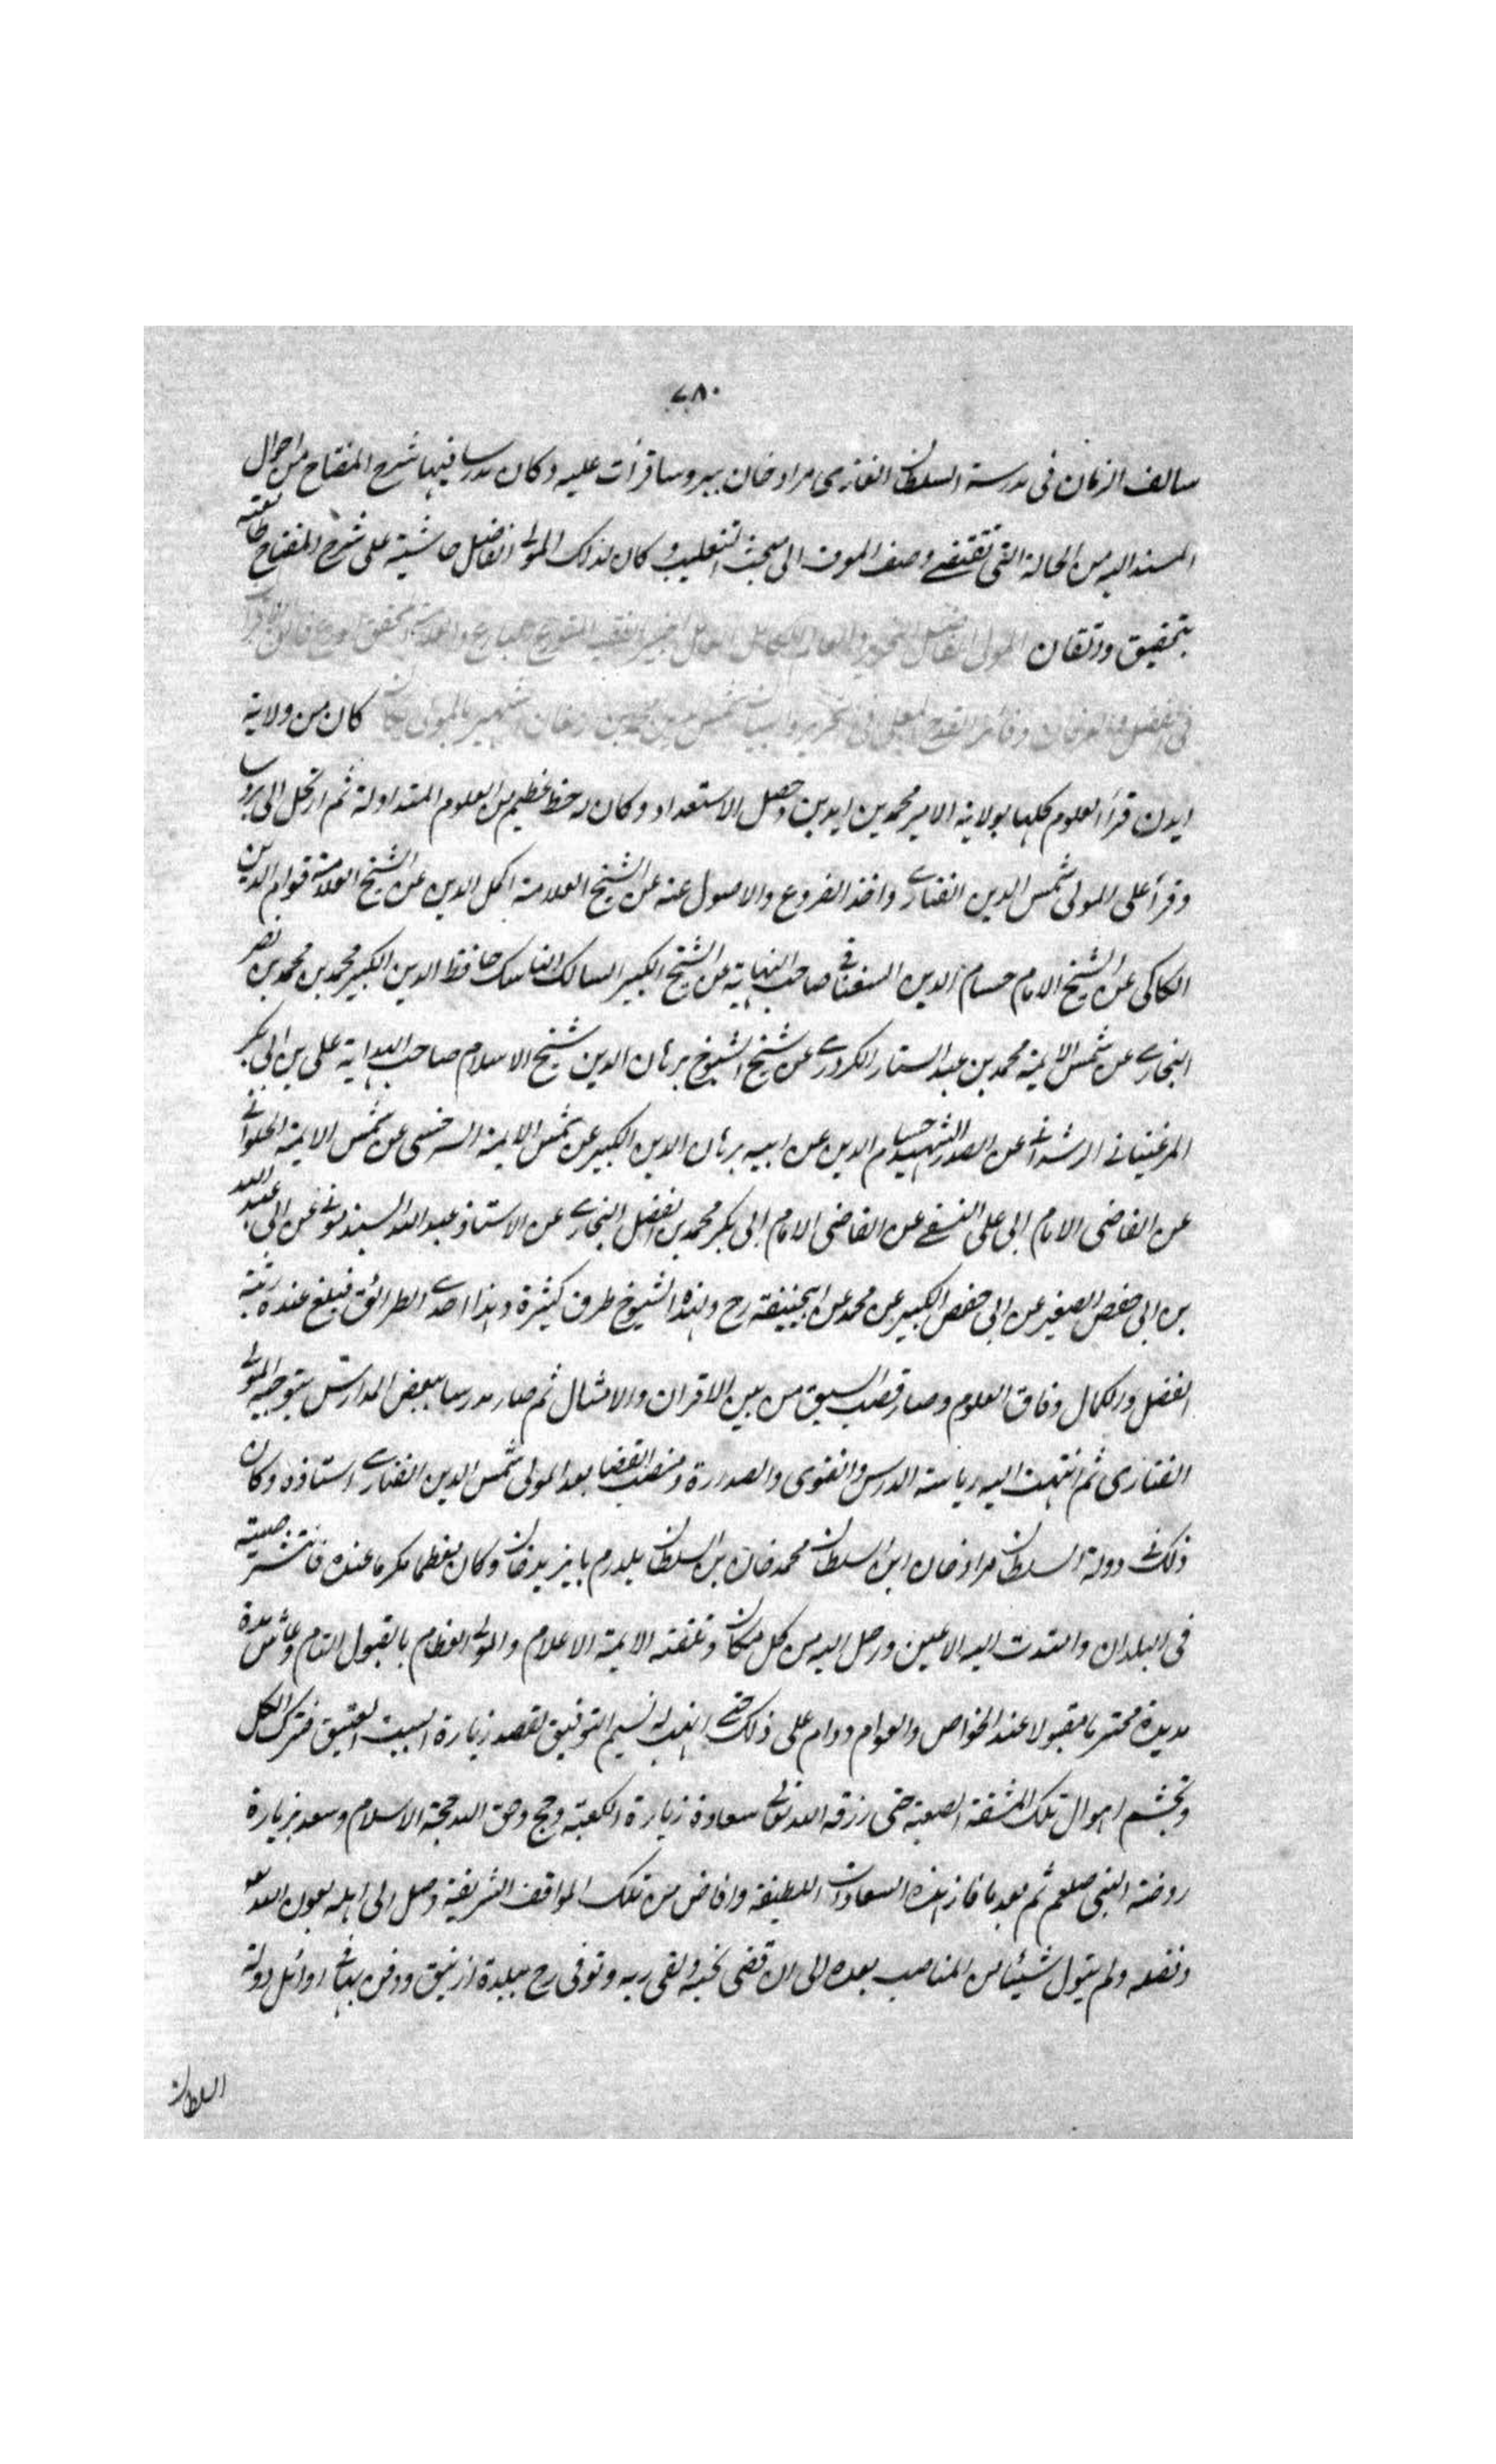 ٧٨٠
سالف الزمان فى مدرسة السلطان الغازى مراد خان ببروسا قرأت عليه وكان مدرسا فيها شرح المفتاح من احوال
المسند اليه من الحالة التى تقتضى وصف المعرف الى مبحث التغليب وكان لذلك المولى الفاضل حاشية على شرح المفتاح طالعته
بتحقيق واتقان المولى الفاضل النحرير والعالم الكامل
فى الفضل والعرفان شمس الدين محمد بن ارمغان الشهير بالمولى يكان كان من ولاية
ايدين قرأ العلوم كلها بولاية الامير محمد بن ايدين وحصل الاستعداد وكان له حظ عظيم من العلوم المتداولة ثم ارتحل الى بروسا
وقرأ على المولى شمس الدين الفنارى واخذ الفروع والاصول عنه عن الشيخ العلامة اكمل الدين عن الشيخ العلامة قوام الدين
الكاكى عن الشيخ الامام حسام الدين السغناقى صاحب النهاية عن الشيخ الكبير السالك الناسك حافظ الدين الكبير محمد بن محمد بن نصر
البخارى عن شمس الايمة محمد بن عبد الستار الكردرى عن شيخ الشيوخ برهان الدين شيخ الاسلام صاحب الهداية على بن ابى بكر
المرغينانى الرشدانى عن الصدر الشهيد حسام الدين عن ابيه برهان الدين الكبير عن شمس الايمة السرخسى عن شمس الايمة الحلوانى
عن القاضى الامام ابى على النسفى عن القاضى الامام ابى بكر محمد بن الفضل البخارى عن الاستاذ عبد الله السبذمونى عن ابى عبد الله
بن ابى حفص الصغير عن ابى حفص الكبير عن محمد عن ابيحنيفة رح ولهذه الشيوخ طرق كثيرة وهذا احدى الطرائق فبلغ عنده رتبة
الفضل والكمال وفاق العلوم وصار قصب السبق من بين الاقران والامثال ثم صار مدرسا ببعض المدارس بتوجيه المولى
الفنارى ثم انتهت اليه رياسة الدرس والفتوى والصدارة ومنصب القضا بعد المولى شمس الدين الفنارى استاذه وكان
ذلك فى دولة السلطان مراد خان ابن السلطان محمد خان بن السلطان يلدرم بايزيد خان وكان معظما مكرما عنده فانتشر صيته
فى البلدان وامتدت اليه الاعين ورحل اليه من كل مكان وتلقته الايمة الاعلام والموالى العظام بالقبول التام وعاش مدة
مديدة محترما مقبولا عند الخواص والعوام ودام على ذلك حتى اهتب له نسيم التوفيق لقصد زيارة البيت العتيق فترك الكل
وتجشم اهوال تلك المشقة الصعبة حتى رزقه الله تعالى سعادة زيارة الكعبة وحج وحق الله حجة الاسلام وسعد بزيارة
روضة النبى صلعم ثم بعد ما فاز بهذه السعادات اللطيفة وافاض من تلك المواقف الشريفة وصل الى اهله بعون الله تعالى
وفضله ولم يتول شيئا من المناصب بعده الى ان قضى نحبه ولقى ربه وتوفى رح ببلدة ازنيق ودفن بها فى اوائل دولة
السلطان